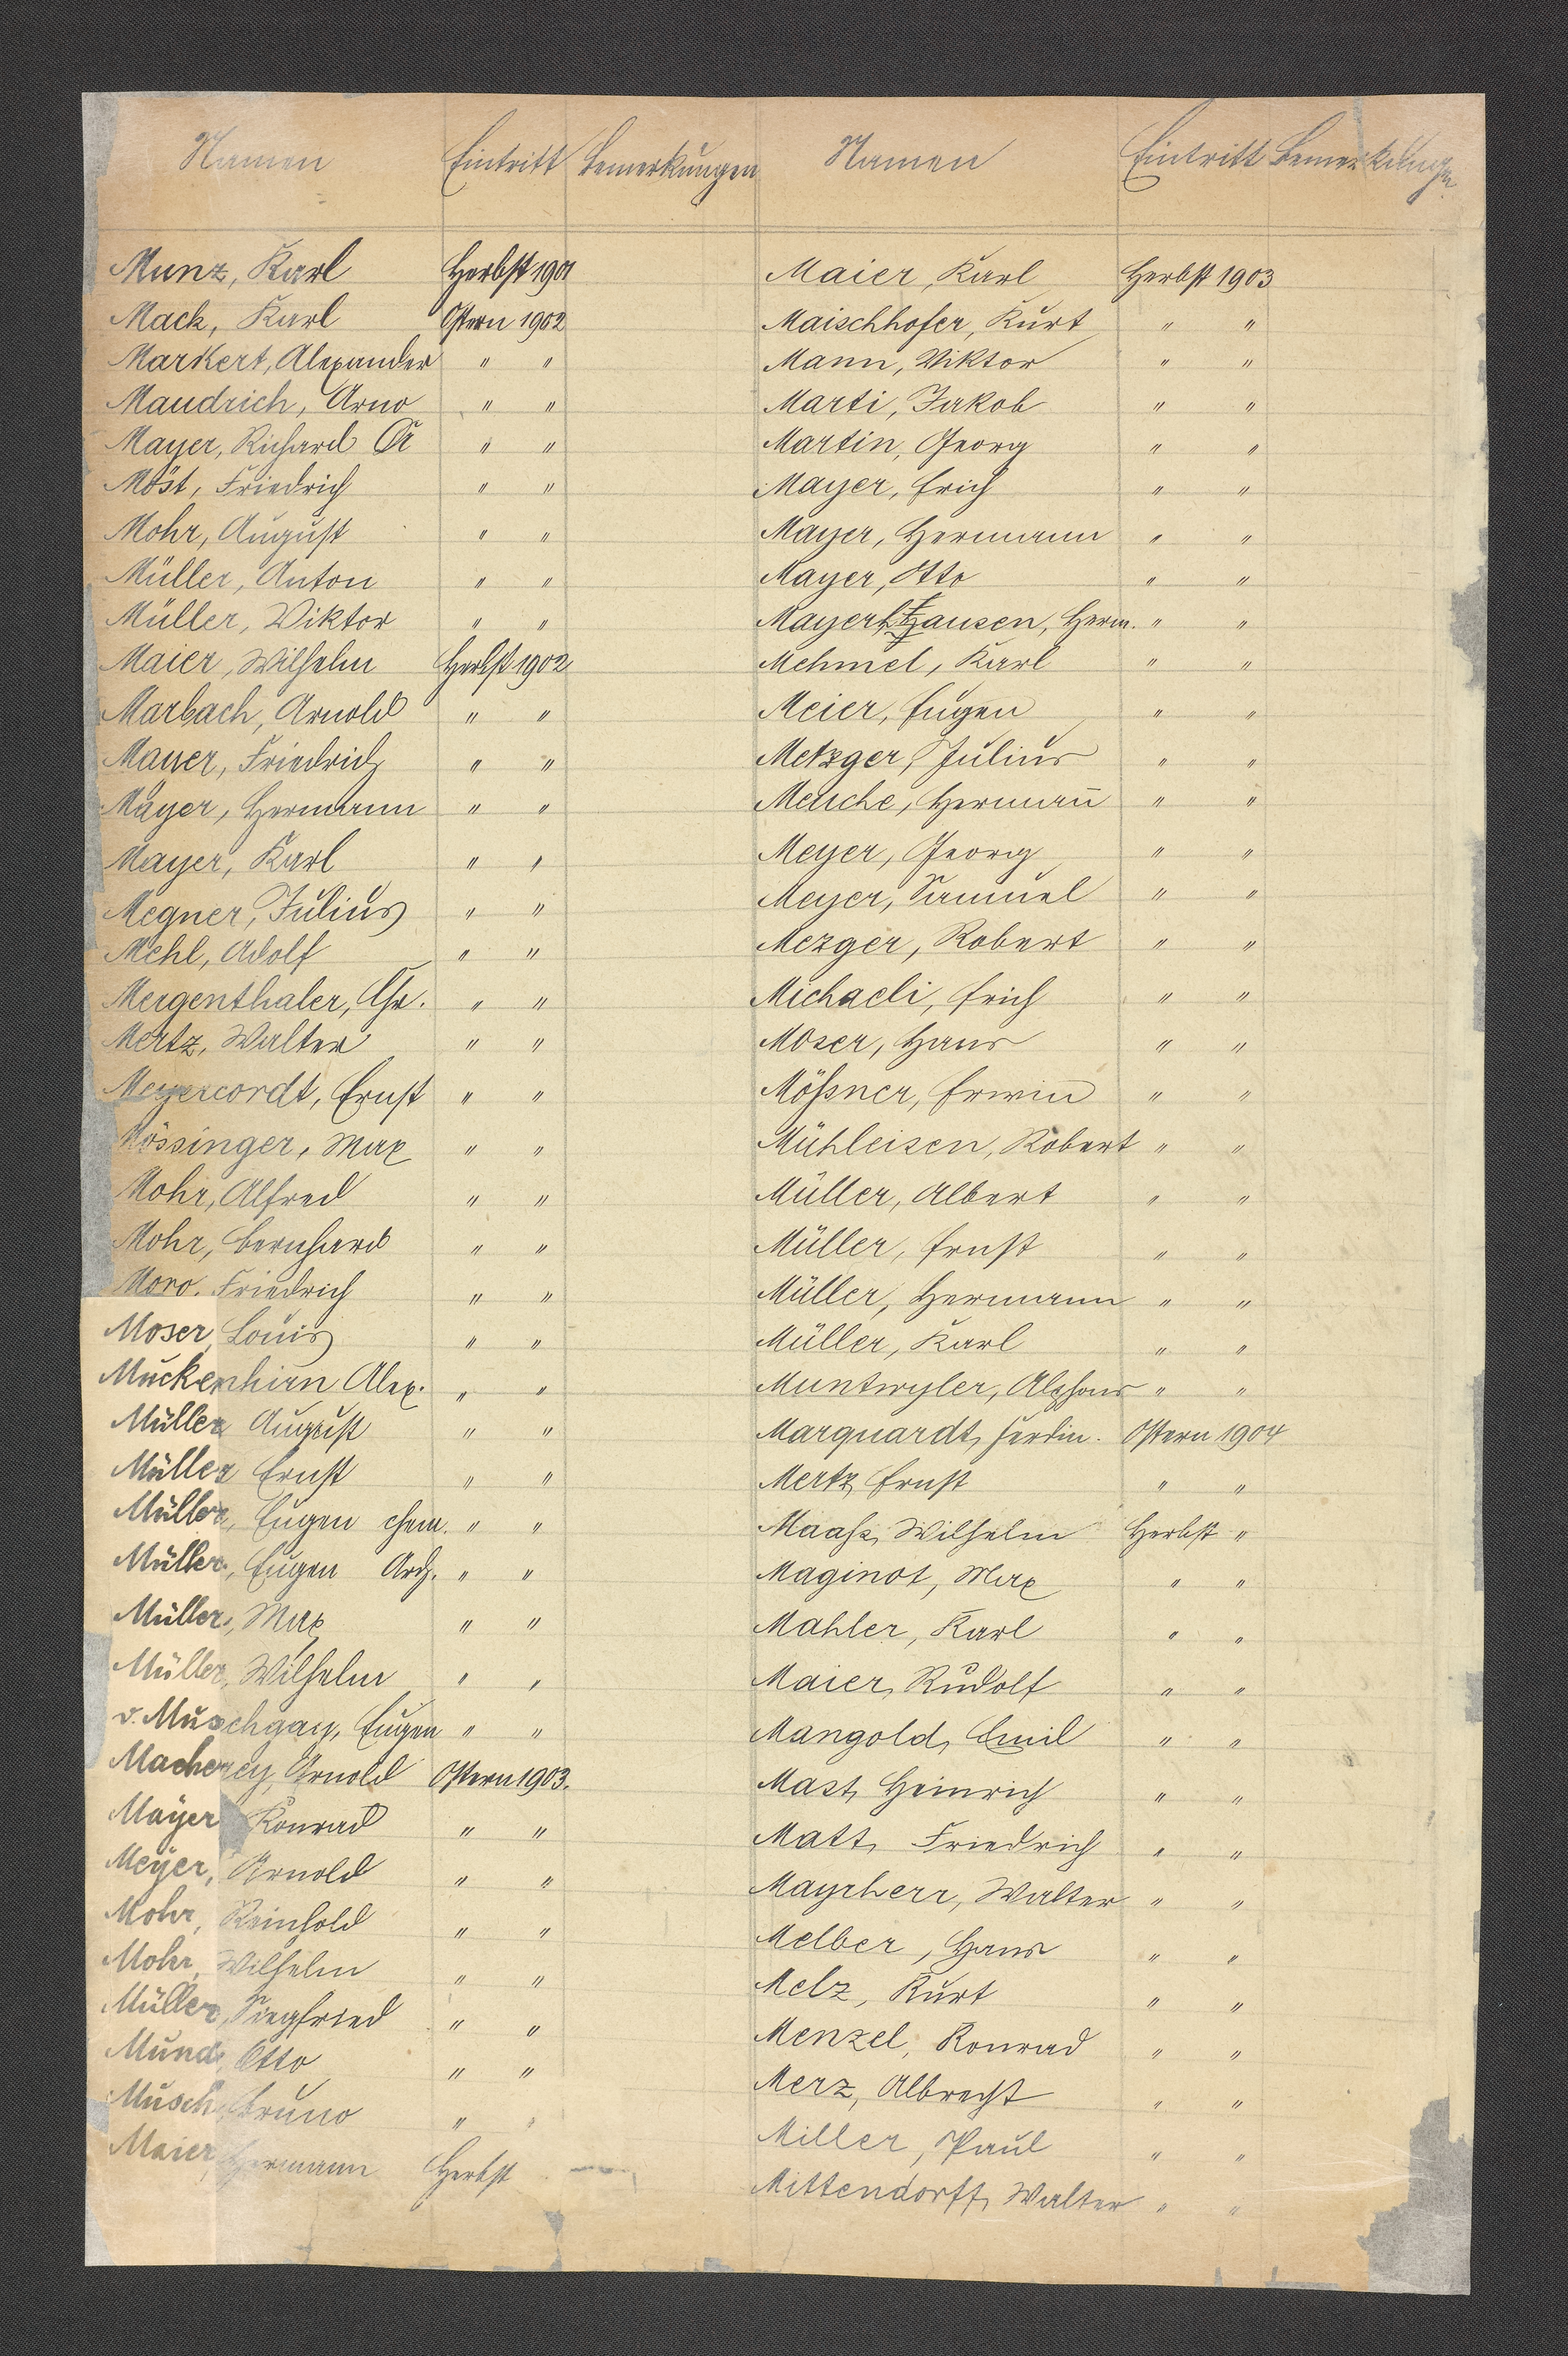 Namen Eintritt Bemerkungen
Munz, Karl Herbst 1901
Mack, Karl Ostern 1902
Markert, Alexander " "
Maudrich, Arno " "
Mayer, Richard " "
Möst, Friedrich " "
Mohr, August " "
Müller, Anton " "
Müller, Viktor " "
Maier, Wilhelm Herbst 1902
Marbach, Arnold " "
Mauer, Friedrich " "
Mayer, Hermann " "
Mayer, Karl " "
Megner, Julius " "
Mehl, Adolf " "
Mergenthaler, Chr. " "
Mertz, Walter " "
Meyercordt, Ernst " "
Mössinger, Max " "
Mohr, Alfred " "
Mohr, Bernhard " "
Moro, Friedrich " "
Moser, Louis " "
Muckenhirn Alex. " "
Müller August " "
Müller Ernst " "
Müller, Eugen chem. " "
Müller, Eugen Arch. " "
Müller, Max " "
Müller, Wilhelm " "
v. Muschgay, Eugen " "
Macherey, Arnold Ostern 1903.
Mayer Konrad " "
Meyer, Arnold " "
Mohr, Reinhold " "
Mohr, Wilhelm " "
Müller, Siegfried " "
Mund, Otto " "
Musch, Bruno " "
Maier, Hermann Herbst
Namen Eintritt Bemerkungen
Maier, Karl Herbst 1903
Maischhofer, Kurt " "
Mann, Viktor " "
Marti, Jakob " "
Martin, Georg " "
Mayer, Erich " "
Mayer, Hermann " "
Mayer, Otto " "
Herm. " "
Mehmel, Karl " "
Meier, Eugen " "
Metzger, Julius " "
Meuche, Hermann̄ " "
Meyer, Georg " "
Meyer, Samuel " "
Mezger, Robert " "
Michaeli, Erich " "
Moser, Hans " "
Mößner, Erwin " "
Mühleisen, Robert " "
Müller, Albert " "
Müller, Ernst " "
Müller, Hermann " "
Müller, Karl " "
Muntwyler, Alphons " "
Marquardt, Ferdin. Ostern 1904
Mertz, Ernst " "
Maaß, Wilhelm Herbst "
Maginot, Max " "
Mahler, Karl " "
Maier, Rudolf " "
Mangold, Emil " "
Mast, Heinrich " "
Matt, Friedrich " "
Mayrherr, Walter " "
Melber, Hans " "
Melz, Kurt " "
Menzel, Konrad " "
Merz, Albrecht " "
Miller, Paul " "
Mittendorff, Walter " "